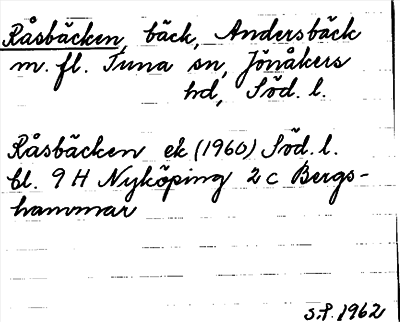 Råsbäcken, bäck, Andersbäck
m. fl. Tuna sn, Jönåkers
hd, Söd. l.
Råsbäcken ek (1960) Söd. l.
bl. 9 H Nyköping 2 c Bergs-
hammar
S.P. 1962